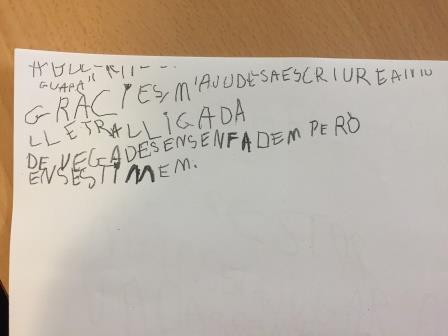 GUAPA"
GRACIES, M'AJUDES A ESCRIURE AMB
LLETRA LLIGADA
DE VEGADES ENS ENFADEM PERÒ
ENS ESTIMEM.